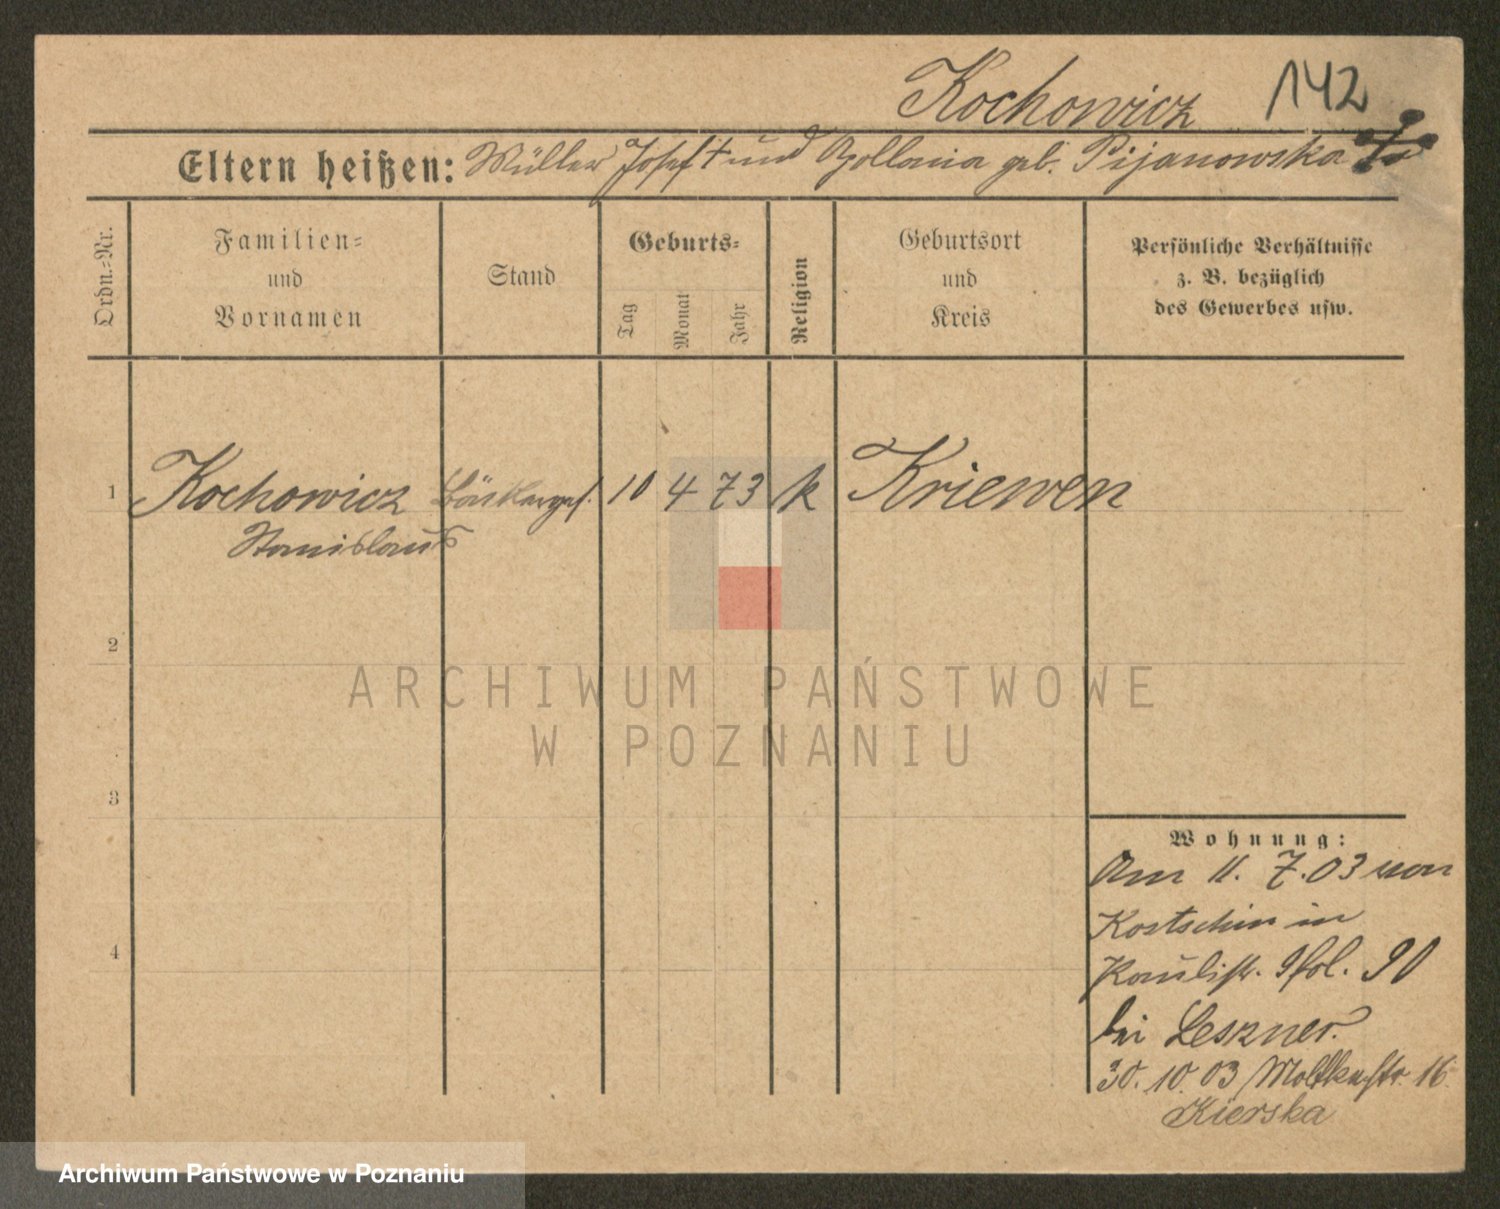 Kochowicz 142
Eltern heißen: Müller Josef † und Apollonia geb. Pijanowska
Ordn.-Nr.
Familien-
und
Vornamen
Stand
Geburts-
Tag
Monat
Jahr
Religion
Geburtsort
und
Kreis
Persönliche Verhältnisse
z. B. bezüglich
des Gewerbes usw.
1 Kochowicz Böttcherges. 10 4 73 k Kriewen
Stanislaus
2
ARCHIWUM PAŃSTWOWE
W POZNANIU
3
Wohnung:
Am 11. 7. 03 von
Kostschin in
Paulistr. 90
bei Leszner.
30. 10. 03 Moltkestr. 16
Kierska
4
Archiwum Państwowe w Poznaniu